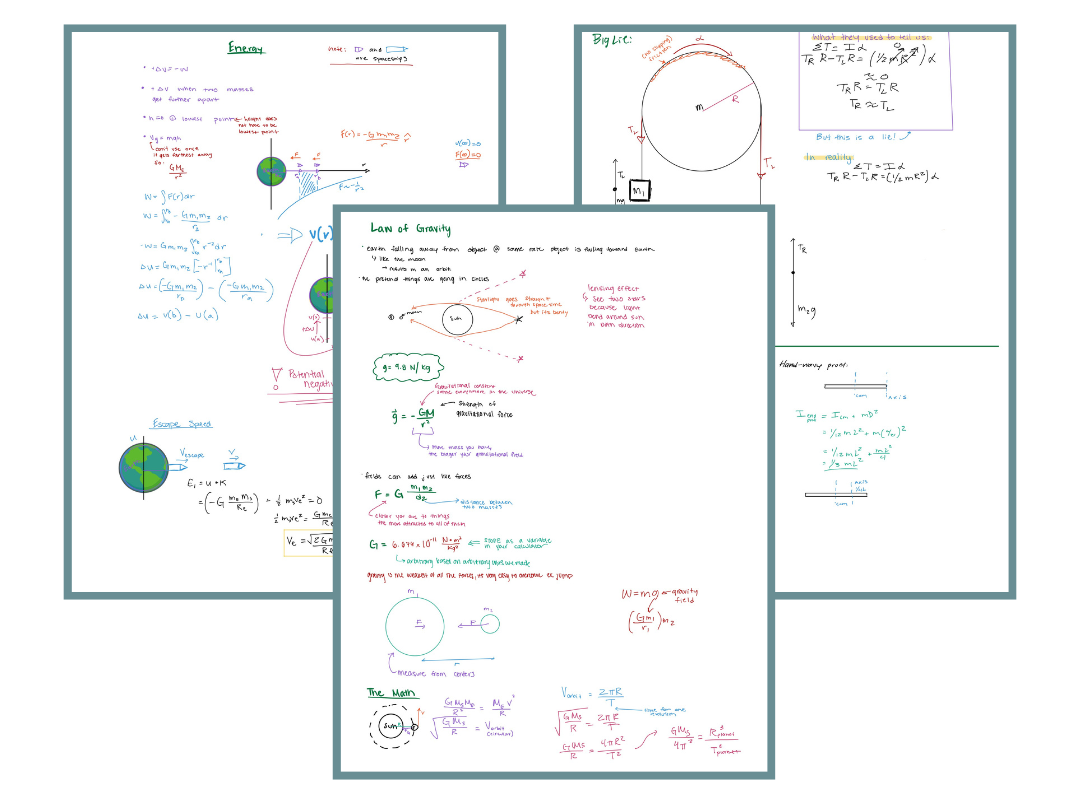 Energy
note: and
are spaceships
+ΔU = -W
+ΔU when two masses
get further apart
h=0 @ lowest point
height does
not have to be
lowest point
Vg = mgh
can't use once
it gets farther away
so:
GM₂
r²
F(r) = -Gm₁m₂ r̂
r
v(∞)=0
F(∞)=0
F
F
r
F~-1/r²
W = ∫F(r)dr
W = ∫ - Gm₁m₂ dr
r²
-W = Gm₁m₂ ∫ r⁻²dr
ΔU = Gm₁m₂ [-r⁻¹]
ΔU = (-Gm₁m₂) - (-Gm₁m₂)
ΔU = U(b) - U(a)
V(r)
U(b)
+ΔU
U(a)
! Potential
negativ
Escape Speed
Vescape
V
E₁ = U + K
= (-G mₑmₛ / Rₑ) + ½ mₛvₑ² = 0
½ mₛvₑ² = Gmₑmₛ
Rₑ
Vₑ = √2Gm
Rₑ
Big Lie:
α
M
R
T₂
T₁
mg
m₁
What they used to tell us:
ΣT = Iα
T_R R - T_L R = (1/2 mR²)α
0
≈0
T_R R = T_L R
T_R ≈ T_L
But this is a lie!
In reality:
ΣT = Iα
T_R R - T_L R = (1/2 mR²)α
T_R
m₂g
Hand-wavy proof:
cm
axis
I end = Icm + mD²
= 1/12 mL² + m(L/2)²
= 1/12 mL² + mL²/4
= 1/3 mL²
axis
cm
Law of Gravity
earth falling away from object @ same rate object is falling toward Earth
like the moon
→ results in an orbit
Sun
Starlight goes straight
through space time
but it's bendy
lensing effect
see two stars
because light
bend around sun
in both direction
g = 9.8 N/kg
Gravitational constant
same everywhere in the universe
g⃗ = - GM
r²
Strength of
gravitational force
more mass you have,
the bigger your gravitational field
fields can add just like forces
F = G m₁m₂
d²
distance between
two masses
closer you are to things
the more attracted
G = 6.67x10⁻¹¹ N•m²
kg²
store as a variable
in your calculator
arbitrary based on arbitrary units we made
gravity is the weakest of all the forces, its very easy to overcome ex. jump
m₁
m₂
F
F
r
measure from centers
W = mg ← gravity
field
(Gm₁) m₂
The Math
Sun
GMₛMₑ = Mₑv²
R² R
√GMₛ = Vorbit
R (circular)
Vorbit = 2πR
T
time for one
revolution
√GMₛ = 2πR
R T
GMₛ = 4πR²
R T²
GMₛ = R³planet
4π² T²planet